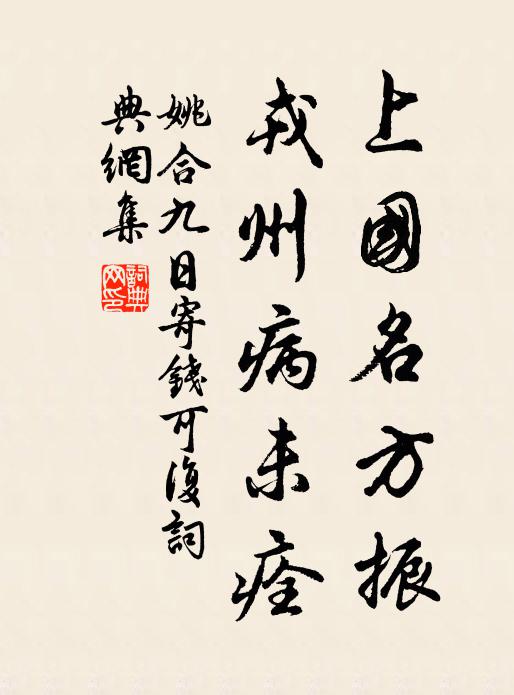 上國名方振
戎州病未痊
姚合九日寄錢可復詞
典網集
詞典
网印